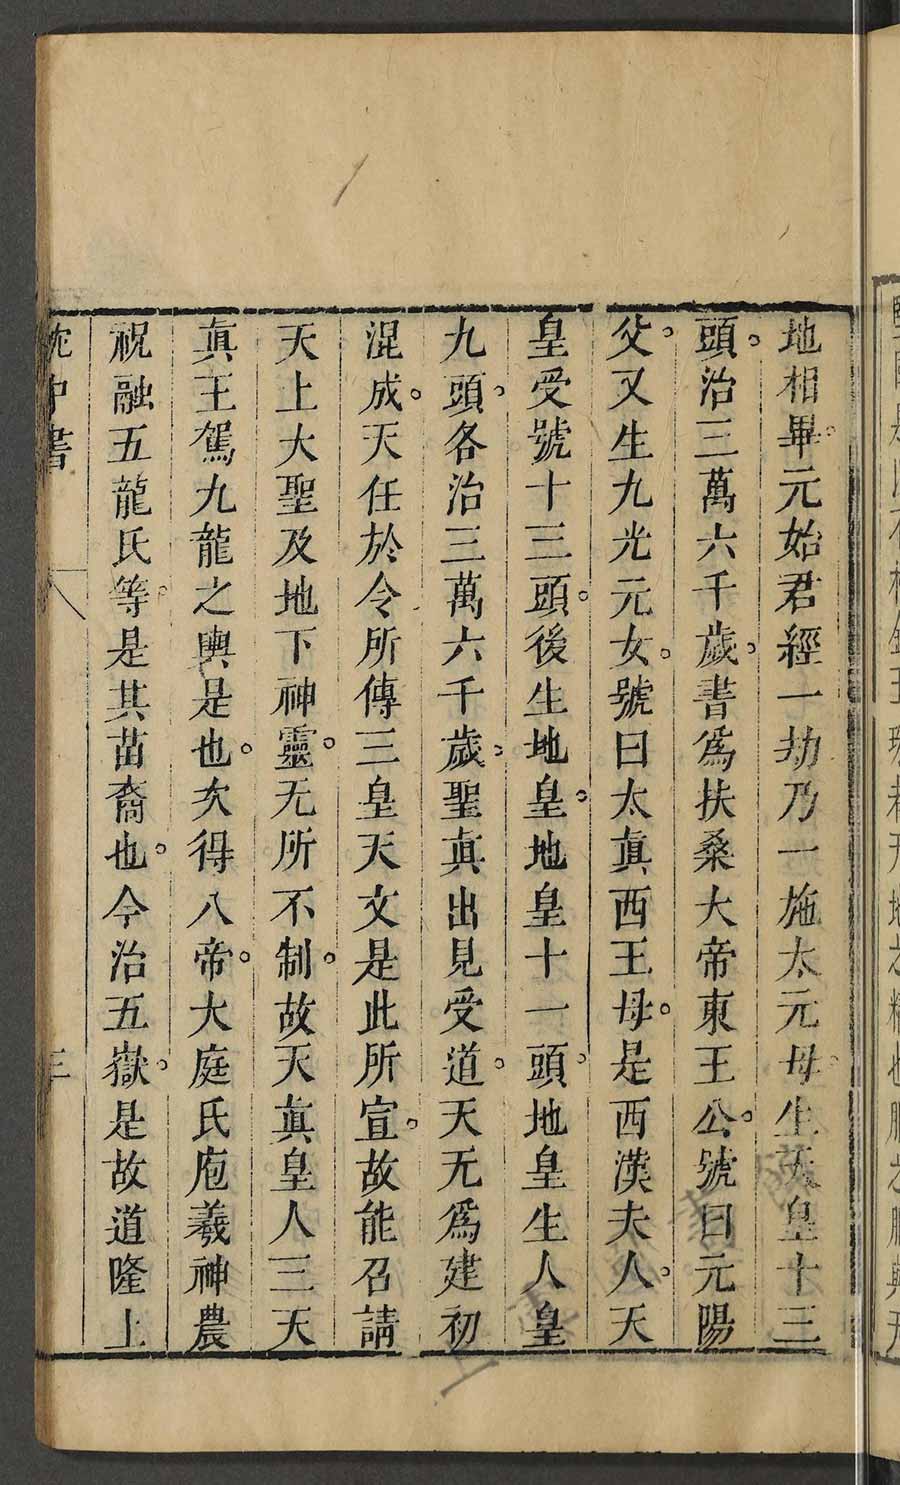 地相畢。元始君經一劫乃一施太元母。生天皇十三
頭。治三萬六千歲。書爲扶桑大帝東王公。號曰元陽
父。又生九光元女。號曰太眞西王母。是西漢夫人。天
皇受號十三頭。後生地皇。地皇十一頭。地皇生人皇
九頭。各治三萬六千歲。聖眞出見受道。天无爲建初
混成。天任於令所傳三皇天文是此所宣。故能召請
天上大聖及地下神靈。无所不制。故天眞皇人三天
眞王駕九龍之輿是也。次得八帝。大庭氏庖羲神農
祝融五龍氏等。是其苗裔也。今治五嶽。是故道隆上
枕中書
三